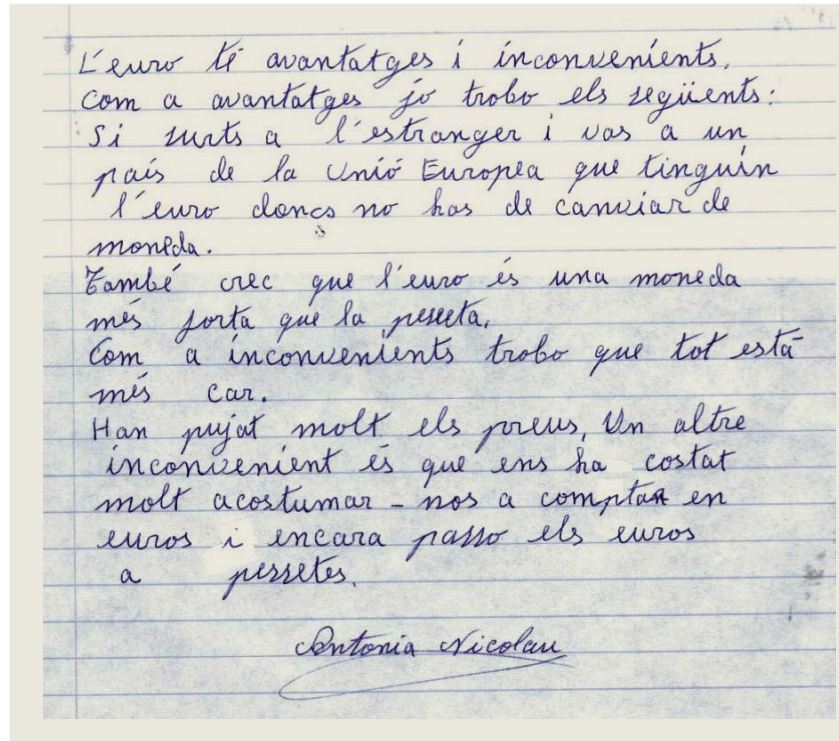 L'euro té avantatges i inconvenients.
Com a avantatges jo trobo els següents:
Si surts a l'estranger i vas a un
país de la Unió Europea que tinguin
l'euro doncs no has de canviar de
moneda.
També crec que l'euro és una moneda
més forta que la pesseta.
Com a inconvenients trobo que tot està
més car.
Han pujat molt els preus, Un altre
inconvenient és que ens ha costat
molt acostumar-nos a comptar en
euros i encara passo els euros
a pessetes.
Antonia Nicolau